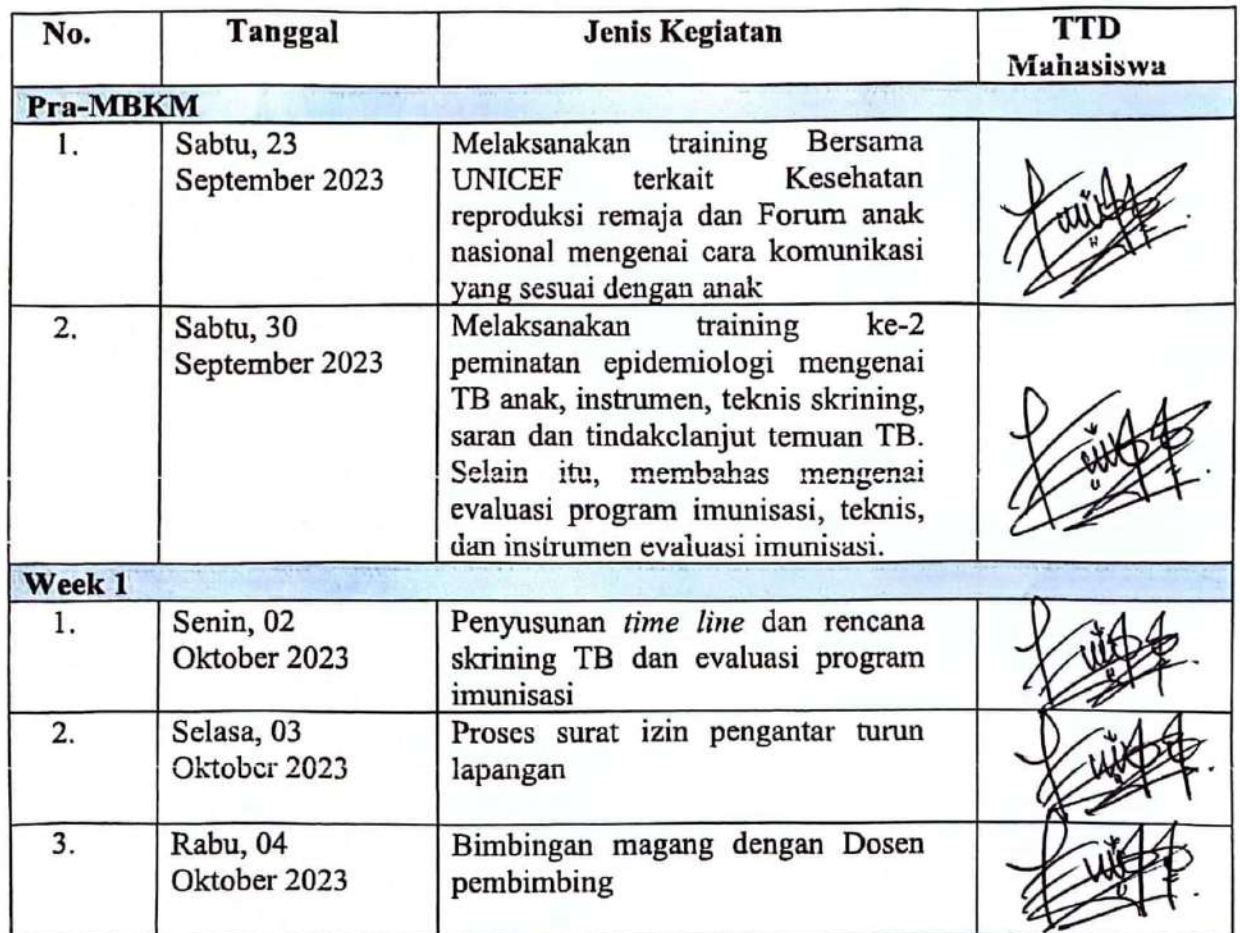 No. Tanggal Jenis Kegiatan TTD
Mahasiswa
Pra-MBKM
1. Sabtu, 23 Melaksanakan training Bersama
September 2023 UNICEF terkait Kesehatan
reproduksi remaja dan Forum anak
nasional mengenai cara komunikasi
yang sesuai dengan anak
2. Sabtu, 30 Melaksanakan training ke-2
September 2023 peminatan epidemiologi mengenai
TB anak, instrumen, teknis skrining,
saran dan tindakclanjut temuan TB.
Selain itu, membahas mengenai
evaluasi program imunisasi, teknis,
dan instrumen evaluasi imunisasi.
Week 1
1. Senin, 02 Penyusunan time line dan rencana
Oktober 2023 skrining TB dan evaluasi program
imunisasi
2. Selasa, 03 Proses surat izin pengantar turun
Oktober 2023 lapangan
3. Rabu, 04 Bimbingan magang dengan Dosen
Oktober 2023 pembimbing